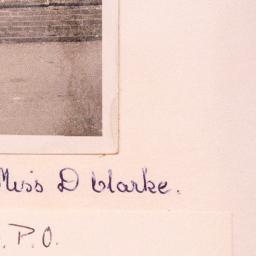 Miss D Clarke.
.P.O.